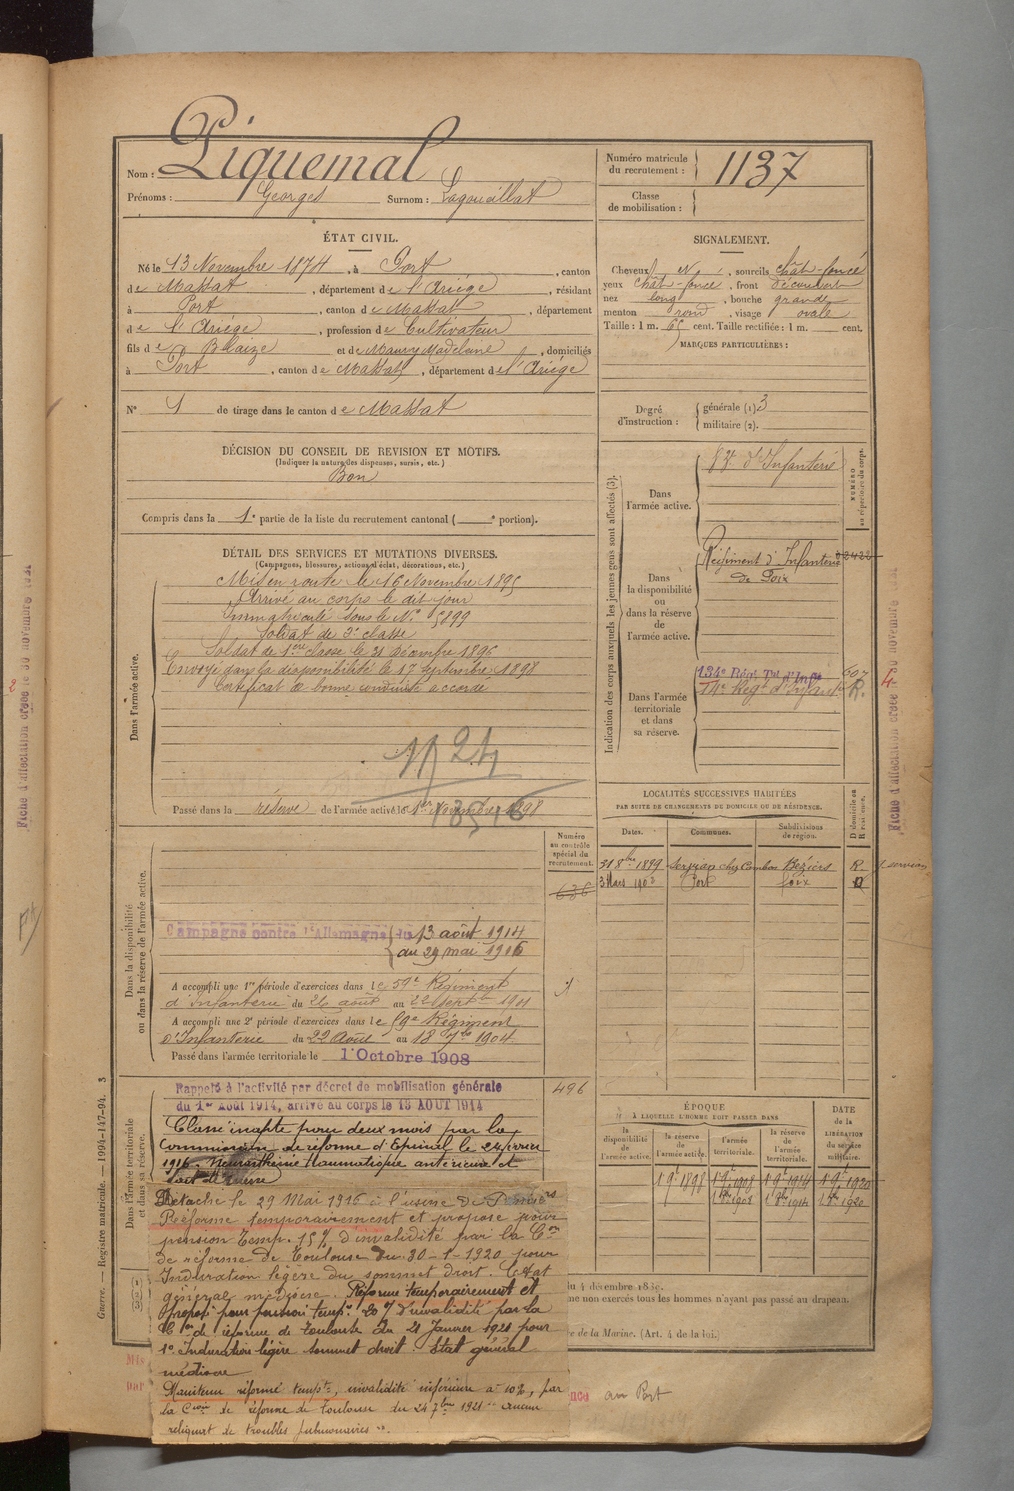 Nom : Piquemal
Prénoms : Georges Surnom : Lagouillat
Numéro matricule du recrutement : 1137
Classe de mobilisation :
ÉTAT CIVIL.
Né le 13 Novembre 1874, à Port, canton
de Massat, département de l'Ariège, résidant
à Port, canton de Massat, département
de l'Ariège, profession de Cultivateur
fils de Blaize et de Maury Madeleine, domiciliés
à Port, canton de Massat, département de l'Ariège
N° 1 de tirage dans le canton de Massat
SIGNALEMENT.
Cheveux N, sourcils chât-foncé
yeux chât-foncé, front découvert
nez long, bouche grande
menton rond, visage ovale
Taille : 1 m. 65 cent. Taille rectifiée : 1 m. cent.
MARQUES PARTICULIÈRES :
Degré d'instruction : générale (1) 3
militaire (2).
DÉCISION DU CONSEIL DE REVISION ET MOTIFS.
(Indiquer la nature des dispenses, sursis, etc.)
Bon
Compris dans la 1e partie de la liste du recrutement cantonal ( e portion).
DÉTAIL DES SERVICES ET MUTATIONS DIVERSES.
(Campagnes, blessures, actions d'éclat, décorations, etc.)
Dans l'armée active.
Mis en route le 16 Novembre 1895
Arrivé au corps le dit jour
Immatriculé sous le N° 5899
Soldat de 2e classe
Soldat de 1ère classe le 31 Décembre 1896
Envoyé dans la disponibilité le 17 Septembre 1898
Certificat de bonne conduite accordé
1124
Passé dans la réserve de l'armée active le 1er Novembre 1898
Indication des corps auxquels les jeunes gens sont affectés (3).
NUMÉRO au répertoire du corps.
Dans l'armée active.
83e d'Infanterie
Dans la disponibilité ou dans la réserve de l'armée active.
Régiment d'Infanterie
de Foix
Dans l'armée territoriale et dans sa réserve.
134e Régt Tal d'Infie
607
R.
LOCALITÉS SUCCESSIVES HABITÉES
PAR SUITE DE CHANGEMENTS DE DOMICILE OU DE RÉSIDENCE.
Dates. Communes. Subdivisions de région. D domicile ou R résidence.
31 8bre 1899 Servian chez Combas Béziers R.
3 Mars 1902 Port Foix D
Dans la disponibilité ou dans la réserve de l'armée active.
Numéro au contrôle spécial du recrutement.
636
Campagne contre l'Allemagne du 13 août 1914
au 29 mai 1916
A accompli une 1re période d'exercices dans le 59e Régiment
d'Infanterie du 26 août au 22 septbre 1901
A accompli une 2e période d'exercices dans le 59e Régiment
d'Infanterie du 22 Août au 18 7bre 1904
Passé dans l'armée territoriale le 1er Octobre 1908
Dans l'armée territoriale et dans sa réserve.
496
Rappelé à l'activité par décret de mobilisation générale
du 1er Août 1914, arrivé au corps le 13 AOUT 1914
Classé inapte pour deux mois par la
Commission de réforme d'Epinal le 24
1916. Neurasthénie traumatique antérieure et
Détaché le 29 Mai 1916 à l'usine de Pamiers
Réformé temporairement et proposé pour
pension Temp. 15 % d'invalidité par la Con
de réforme de Toulouse du 30-1-1920 pour
Induration légère du sommet droit. Etat
général médiocre. Réformé temporairement et
proposé pour pension tempre 20 % d'invalidité par la
Con de réforme de Toulouse du 21 Janvier 1921 pour
1° Induration légère sommet droit. Etat général
médiocre
Maintenu réformé tempt, invalidité inférieure à 10%, par
la Cion de réforme de Toulouse du 24 7bre 1921 "aucun
reliquat de troubles pulmonaires".
ÉPOQUE
À LAQUELLE L'HOMME DOIT PASSER DANS
la disponibilité de l'armée active. la réserve de l'armée active. l'armée territoriale. la réserve de l'armée territoriale.
DATE de la LIBÉRATION du service militaire.
1 9e 1898 1 9e 1908 1 9e 1914 1 9e 1920
1 8bre 1908 1 8bre 1914 1 8bre 1920
du 4 décembre 1889.
me non exercés tous les hommes n'ayant pas passé au drapeau.
re de la Marine. (Art. 4 de la loi.)
au Port
Guerre. — Registre matricule. — 1994-147-94. 3
Fiche d'affectation créée le 30 novembre
Fiche d'affectation créée le 30 novembre